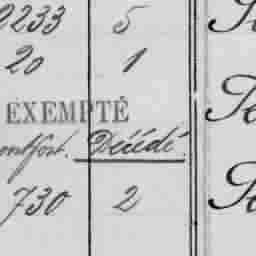 0233 5
20 1
EXEMPTÉ
ontfort. Décédé.
730 2